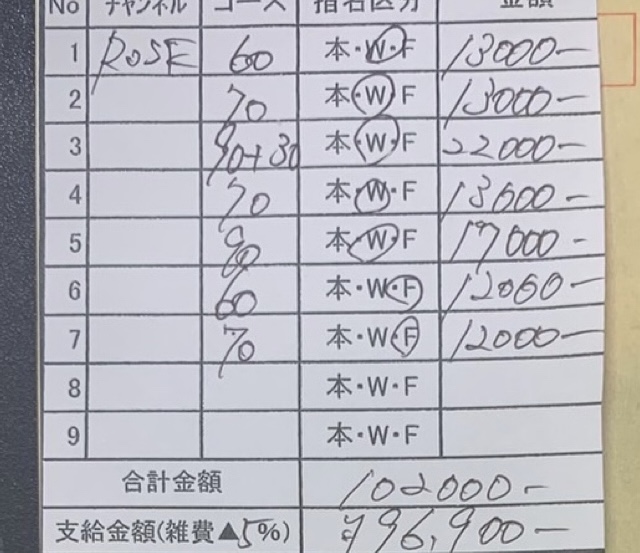 No チャンネル コース 指名区分 金額
1 ROSE 60 本・W・F 13000-
2 70 本・W・F 13000-
3 90+30 本・W・F 22000-
4 70 本・W・F 13000-
5 90 本・W・F 17000-
6 60 本・W・F 12000-
7 70 本・W・F 12000-
8 本・W・F
9 本・W・F
合計金額 102000-
支給金額(雑費▲5%) ¥96,900-